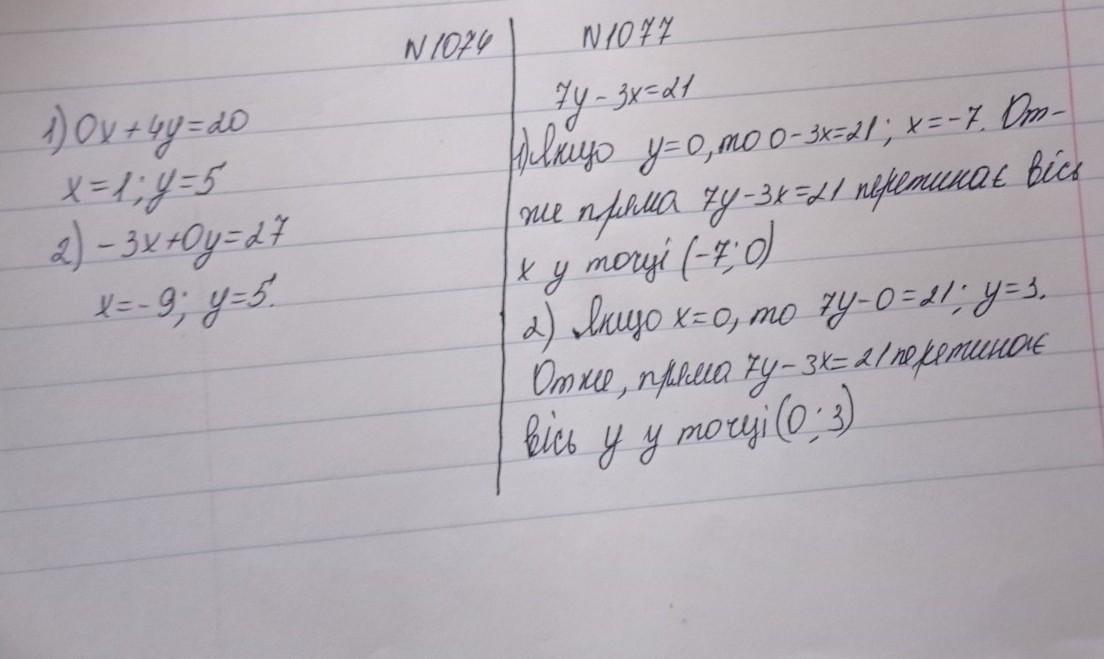 N 1074
1) 0x + 4y = 20
x = 1; y = 5
2) - 3x + 0y = 27
x = - 9; y = 5.
N 1077
7y - 3x = 21
1) Якщо y = 0, то 0 - 3x = 21; x = - 7. От-
же пряма 7y - 3x = 21 перетинає вісь
x у точці (-7; 0)
2) Якщо x = 0, то 7y - 0 = 21; y = 3.
Отже, пряма 7y - 3x = 21 перетинає
вісь y у точці (0; 3)